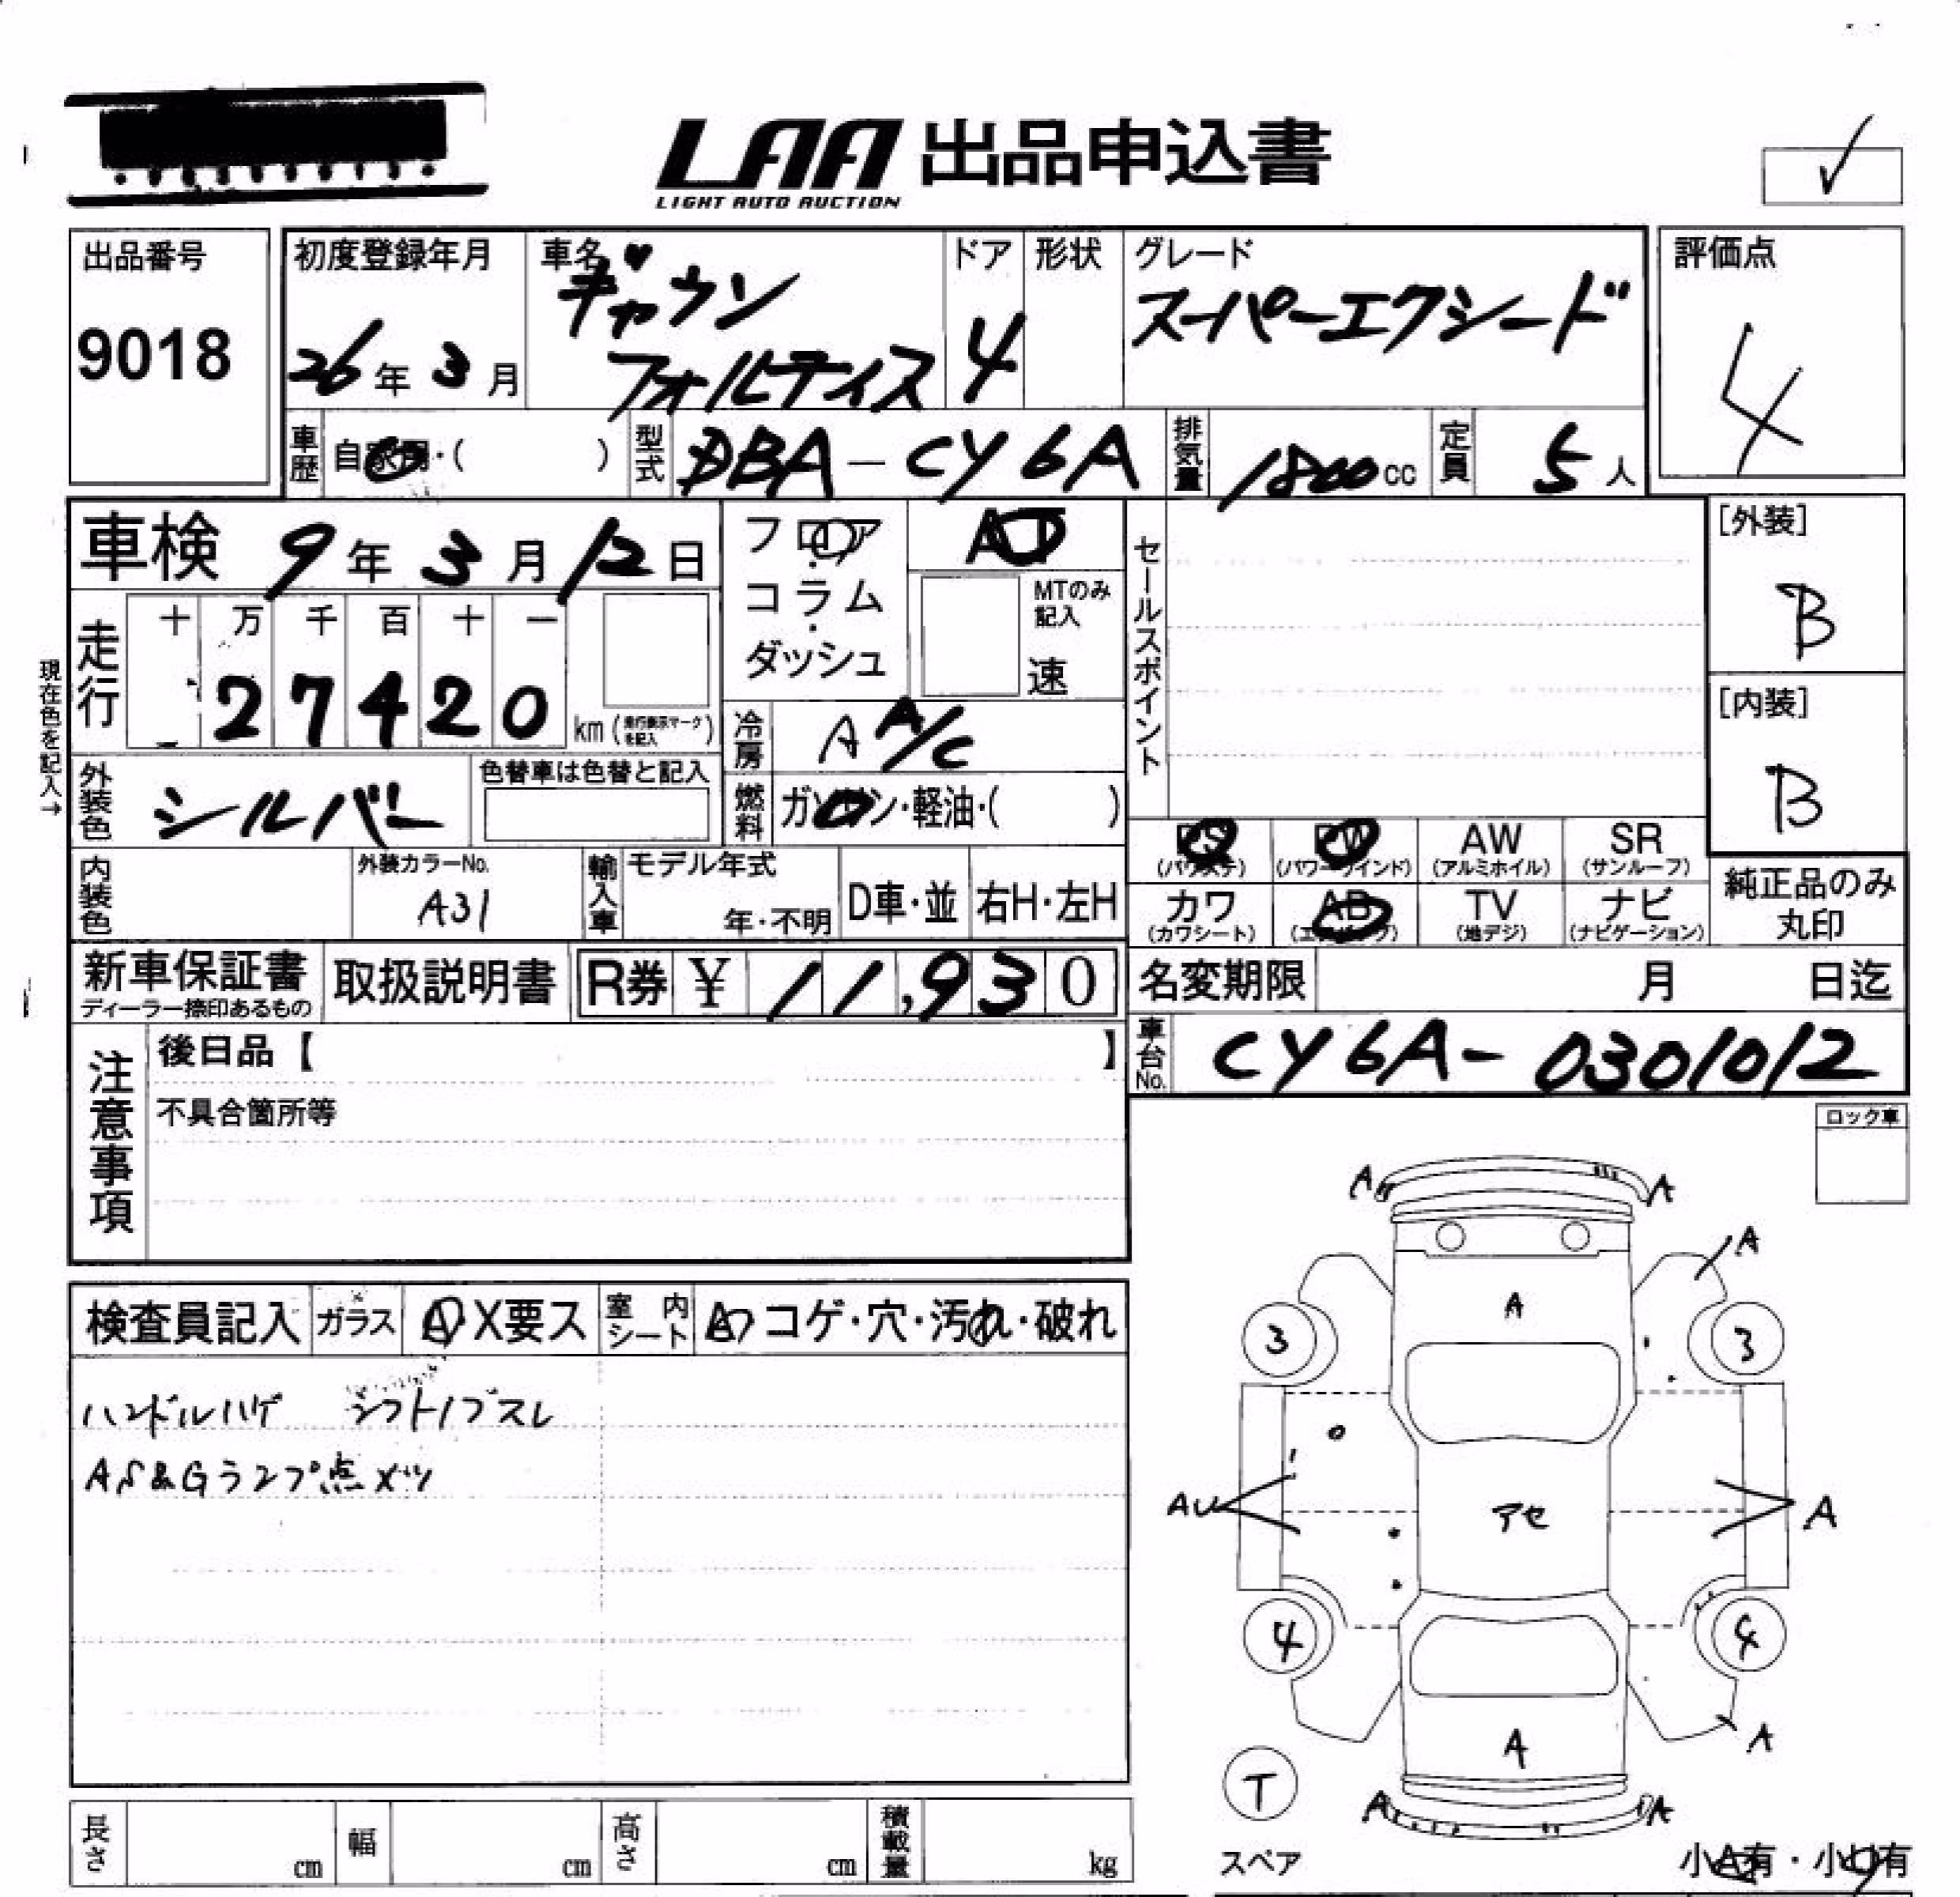 LAA 出品申込書
LIGHT AUTO AUCTION
出品番号
9018
初度登録年月
26年 3月
車名
ギャラン
フォルティス
ドア
4
形状
グレード
スーパーエクシード
評価点
4
車歴
自家用・( )
型式
DBA-CY6A
排気量
1800cc
定員
5人
車検 9年 3月 12日
フロア・コラム・ダッシュ
AT
MTのみ記入
速
セールスポイント
[外装]
B
[内装]
B
現在色を記入→
走行
十 万 千 百 十 一
2 7 4 2 0
km(走行表示マークを記入)
冷房
A A/C
外装色
シルバー
色替車は色替と記入
燃料
ガソリン・軽油・( )
内装色
外装カラーNo.
A31
輸入車
モデル年式
年・不明
D車・並
右H・左H
PS
(パワステ)
PW
(パワーウインド)
AW
(アルミホイル)
SR
(サンルーフ)
カワ
(カワシート)
AB
(エアバッグ)
TV
(地デジ)
ナビ
(ナビゲーション)
純正品のみ
丸印
新車保証書
ディーラー捺印あるもの
取扱説明書
R券 ¥ 11,930
名変期限 月 日迄
車台No.
CY6A-0301012
注意事項
後日品【 】
不具合箇所等
ロック車
検査員記入
ガラス
A X要ス
室内シート
コゲ・穴・汚れ・破れ
ハンドルハゲ シフトノブスレ
AS&Gランプ点メツ
A A
A
A
3 3
AU アセ A
4 4
A
A
T
A A
スペア
小A有・小U有
長さ cm
幅 cm
高さ cm
積載量 kg